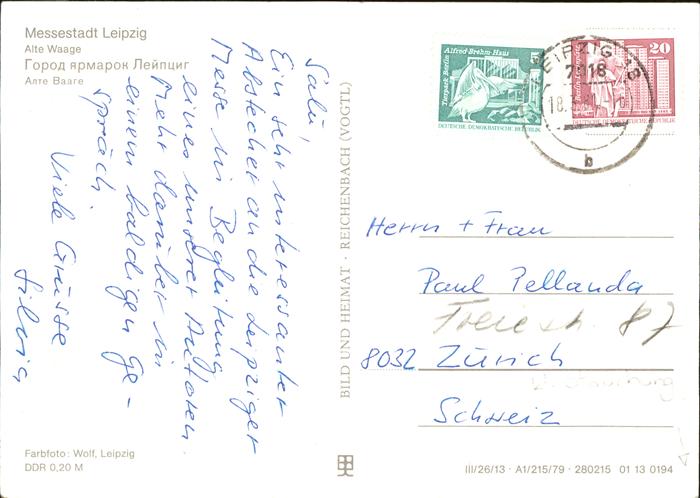 Messestadt Leipzig
Alte Waage
Город ярмарок Лейпциг
Алте Вааге
Salü,
Ein sehr interessanter
Abstecher an die Leipziger
Messe in Begleitung
eines unserer Autoren
Mehr darüber in
einem baldigen Ge-
spräch,
Viele Grüsse
Silvia
Farbfoto: Wolf, Leipzig
DDR 0,20 M
BILD UND HEIMAT · REICHENBACH (VOGTL)
Alfred-Brehm-Haus
Tierpark Berlin
DEUTSCHE DEMOKRATISCHE REPUBLIK
20
DEUTSCHE DEMOKRATISCHE REPUBLIK
LEIPZIG 18
7018
b
Herrn + Frau
Paul Pellanda
Freiestr. 87
8032 Zürich
Schweiz
III/26/13 · A1/215/79 · 280215 01 13 0194